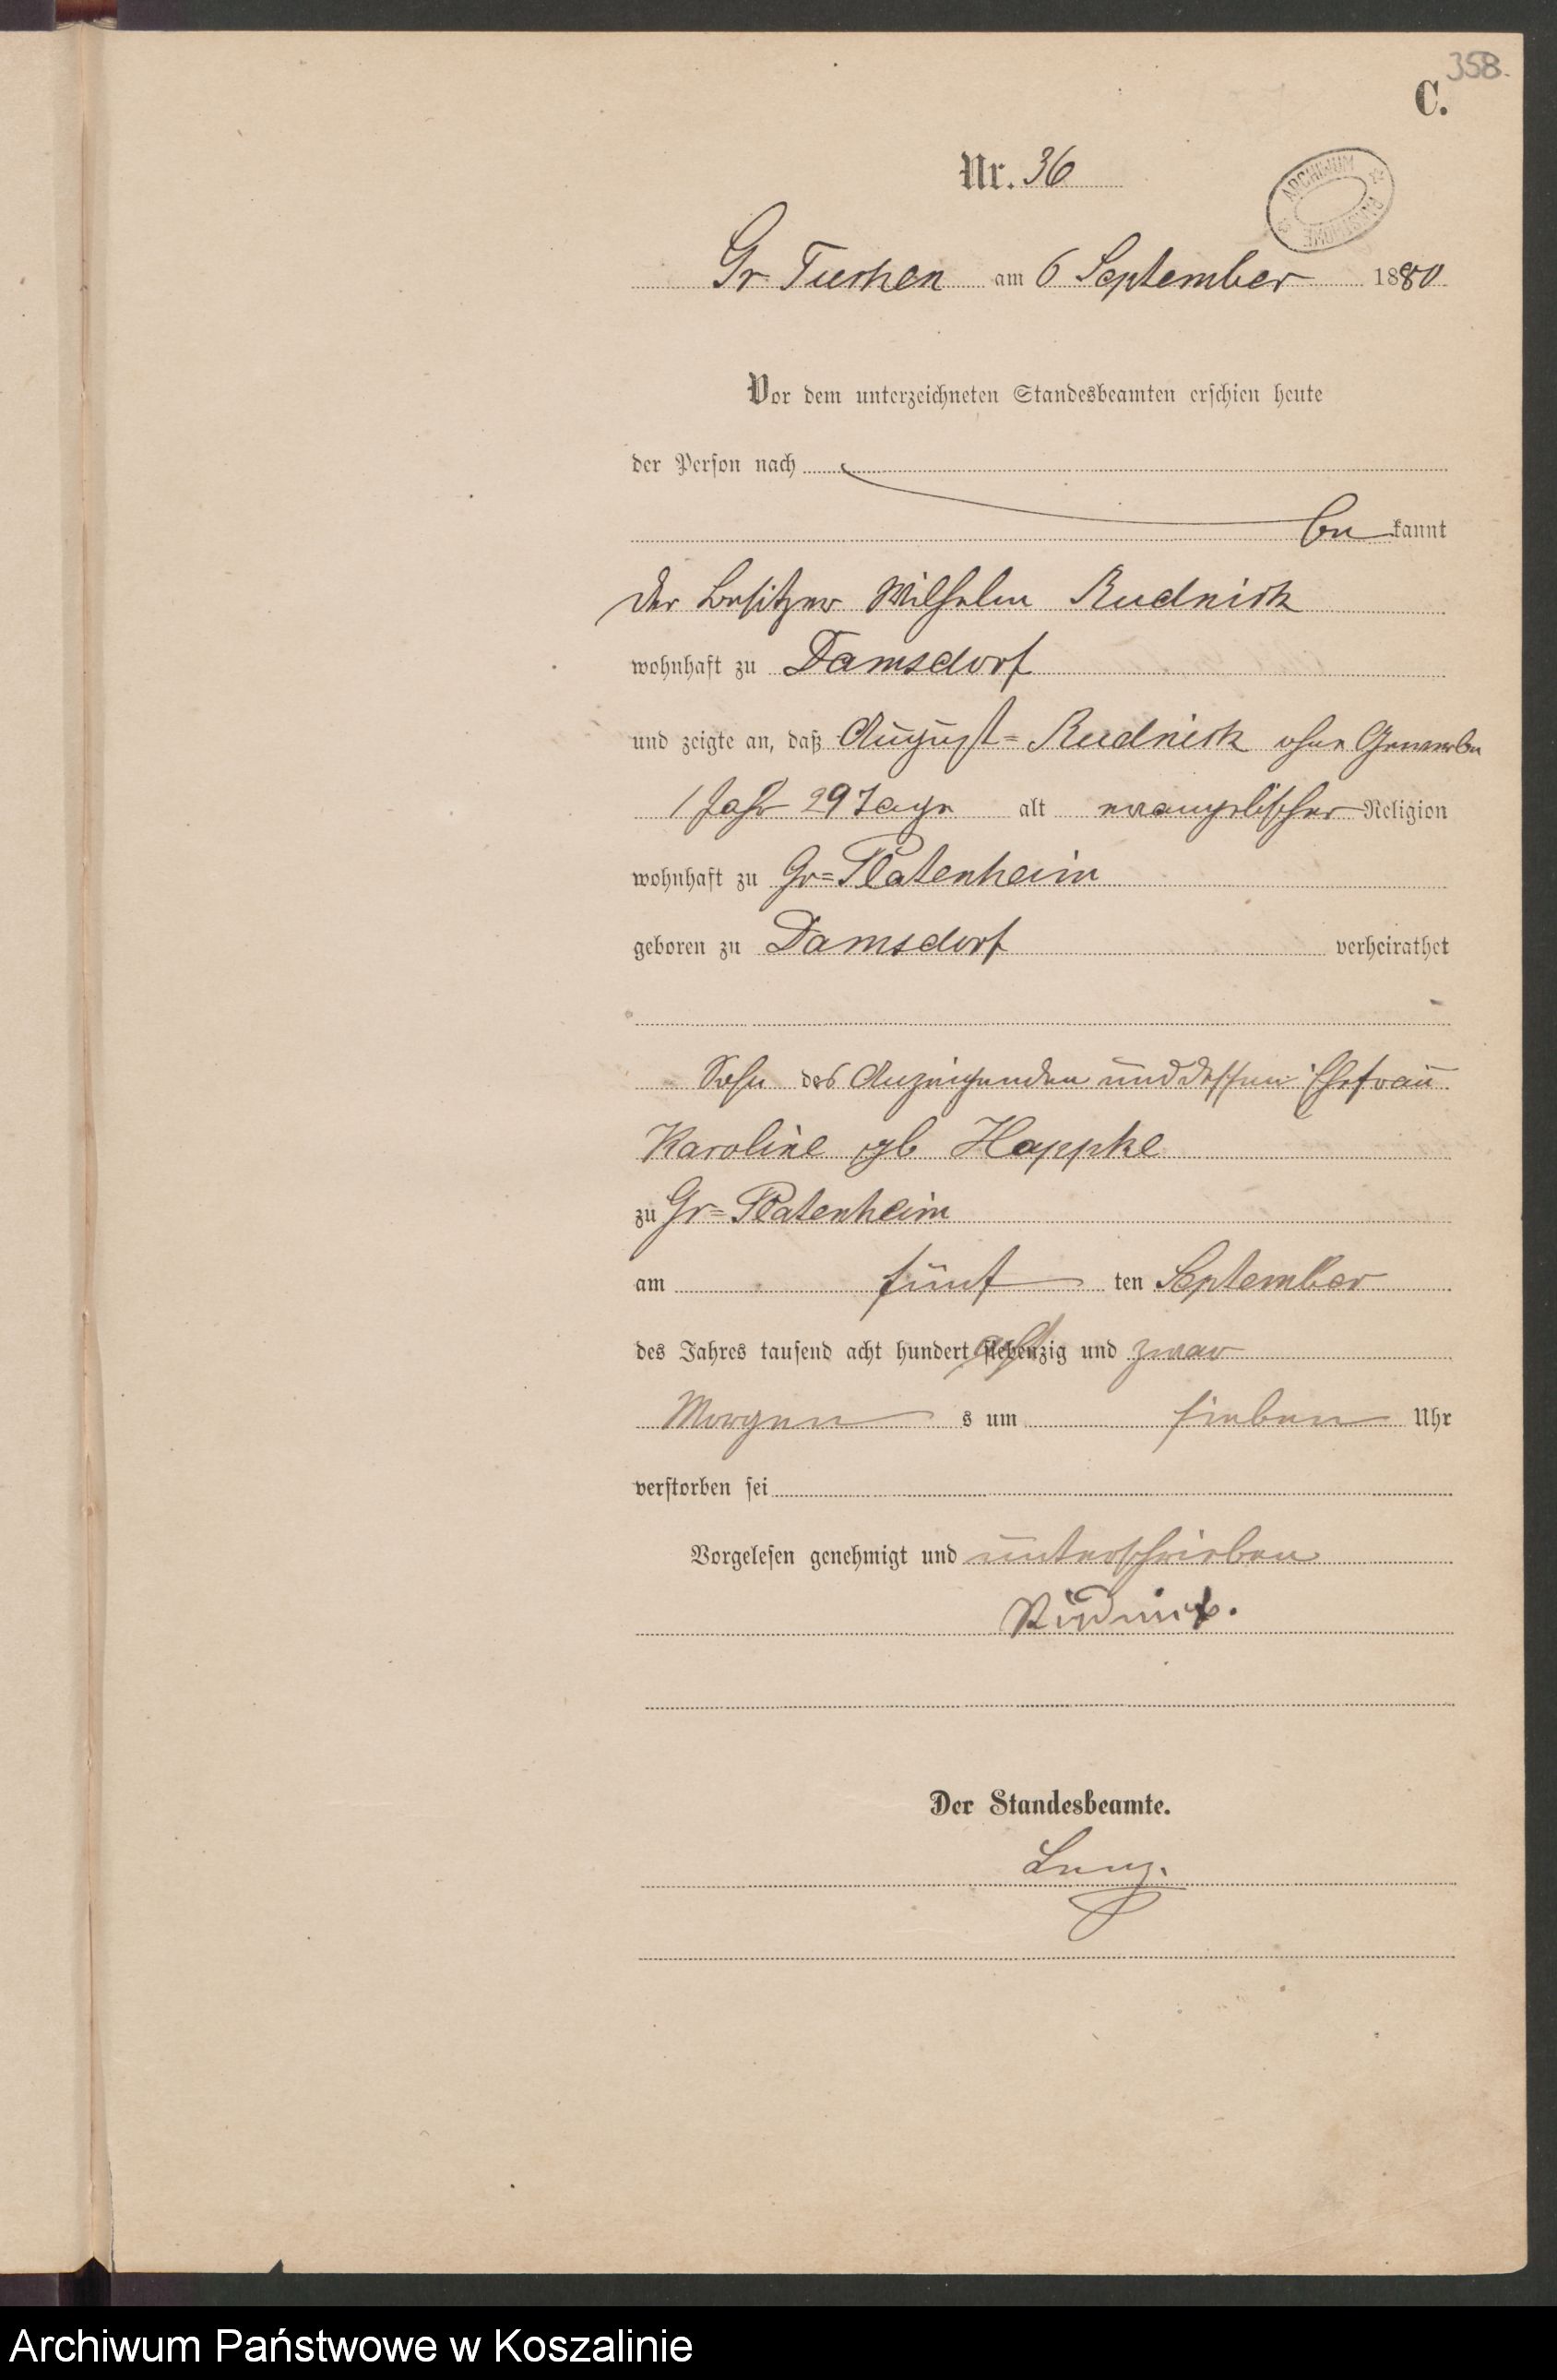 358.
C.
Nr. 36
ARCHIWUM PAŃSTWOWE
Gr. Tuchen am 6 September 1880
Vor dem unterzeichneten Standesbeamten erschien heute
der Person nach
be kannt
der Besitzer Wilhelm Rudnick
wohnhaft zu Damsdorf
und zeigte an, daß August Rudnick ohne Gewerbe
1 Jahr 29 Tage alt evangelischer Religion
wohnhaft zu Gr= Platenheim
geboren zu Damsdorf verheirathet
Sohn des Anzeigenden und dessen Ehefrau
Karoline geb Happke
zu Gr= Platenheim
am fünf ten September
des Jahres tausend acht hundert siebenzig und zwar
Morgen s um sieben Uhr
verstorben sei
Vorgelesen genehmigt und unterschrieben
Rudnick.
Der Standesbeamte.
Archiwum Państwowe w Koszalinie